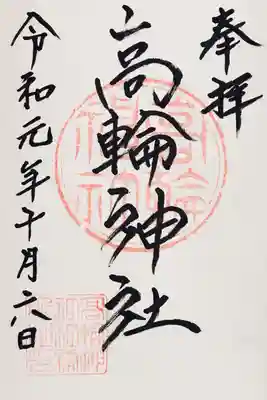 奉拝
高輪神社
令和元年十月六日